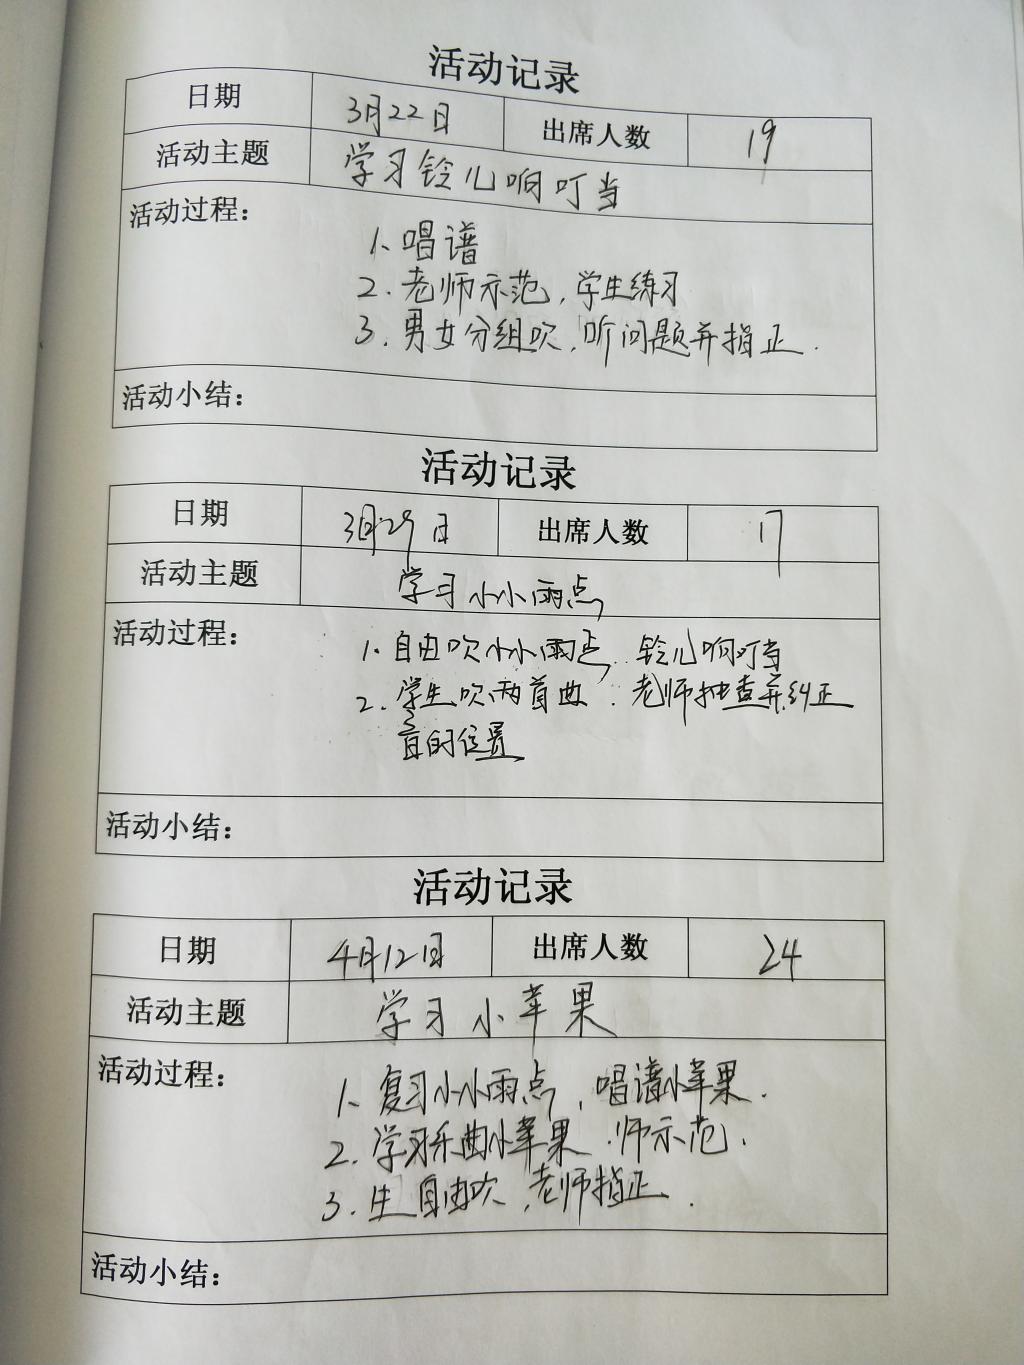 活动记录
日期 3月22日 出席人数 19
活动主题 学习铃儿响叮当
活动过程：
1、唱谱
2. 老师示范，学生练习
3. 男女分组吹，听问题并指正.
活动小结：
活动记录
日期 3月29日 出席人数 17
活动主题 学习小小雨点
活动过程：
1、自由吹小小雨点，铃儿响叮当
2. 学生吹两首曲，老师抽查并纠正
音的位置
活动小结：
活动记录
日期 4月12日 出席人数 24
活动主题 学习小苹果
活动过程：
1、复习小小雨点，唱谱小苹果.
2. 学习乐曲小苹果，师示范.
3. 生自由吹，老师指正.
活动小结：